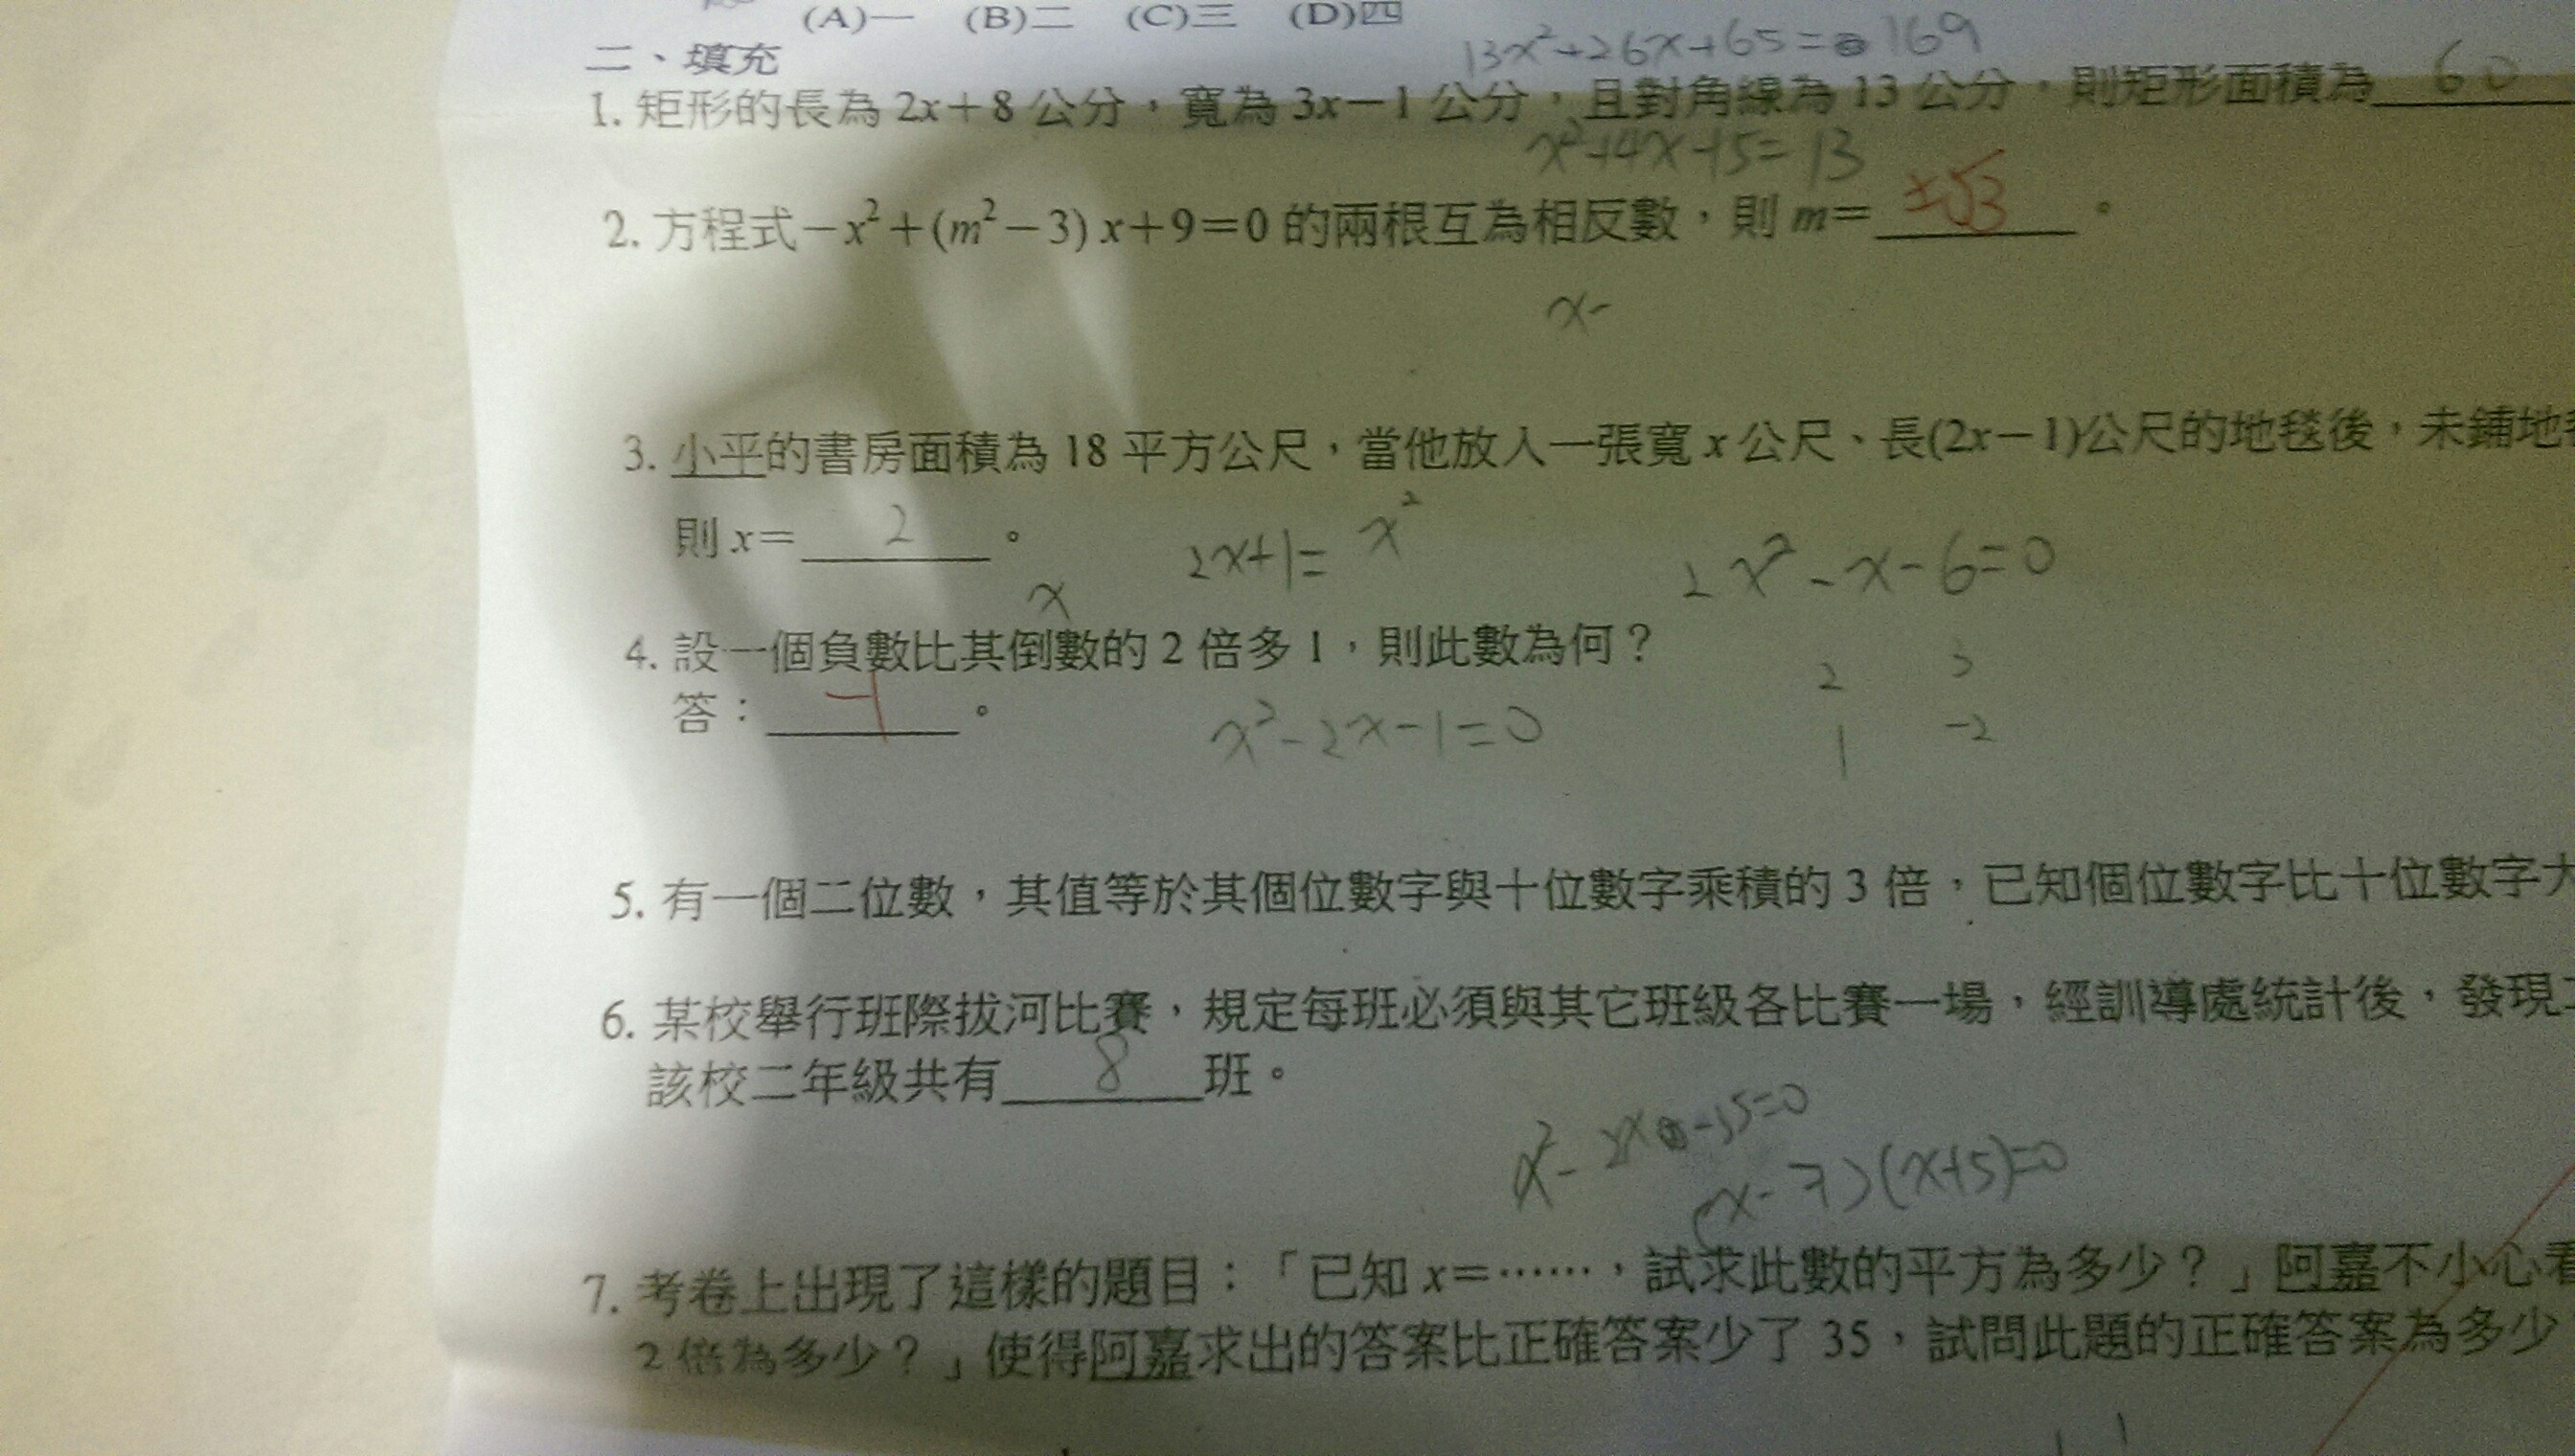 (A)一 (B)二 (C)三 (D)四
二、填充
13x²+26x+65=169
1. 矩形的長為 2x+8 公分，寬為 3x-1 公分，且對角線為 13 公分，則矩形面積為 60
x²+4x+5=13
2. 方程式-x²+(m²-3) x+9=0 的兩根互為相反數，則 m= ±√3 。
x-
3. 小平的書房面積為 18 平方公尺，當他放入一張寬 x 公尺、長(2x-1)公尺的地毯後，未鋪地
則 x= 2 。
2x+1= x²
2x²-x-6=0
x
4. 設一個負數比其倒數的 2 倍多 1，則此數為何？
2 3
答： -1 。
x²-2x-1=0
1 -2
5. 有一個二位數，其值等於其個位數字與十位數字乘積的 3 倍，已知個位數字比十位數字大
6. 某校舉行班際拔河比賽，規定每班必須與其它班級各比賽一場，經訓導處統計後，發現
該校二年級共有 8 班。
x²-2x-35=0
(x-7)(x+5)=0
7. 考卷上出現了這樣的題目：「已知 x=……，試求此數的平方為多少？」阿嘉不小心看
2 倍為多少？」使得阿嘉求出的答案比正確答案少了 35，試問此題的正確答案為多少